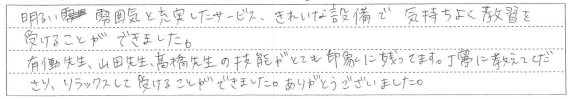 明るい雰囲気と充実したサービス、きれいな設備で 気持ちよく教習を
受けることが できました。
有働先生、山田先生、高橋先生の技能がとても印象に残ってます。丁寧に教えてくだ
さり、リラックスして受けることができました。ありがとうございました。